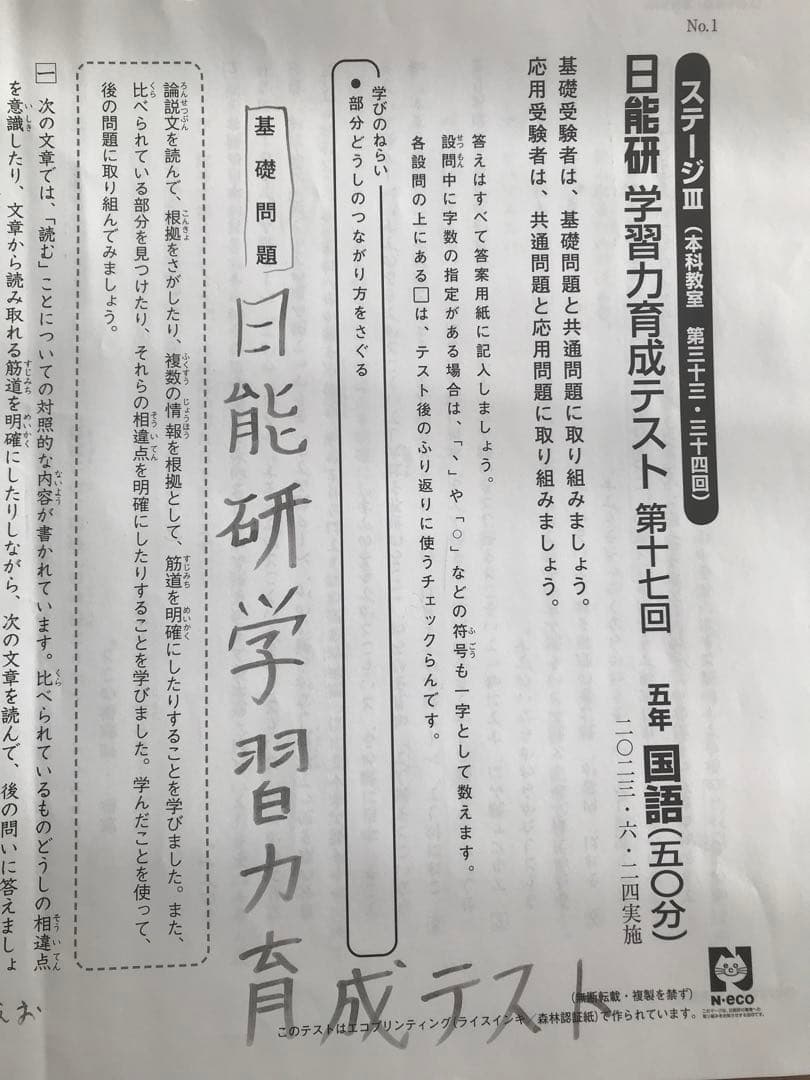 No.1
ステージⅢ(本科教室 第三十三・三十四回)
日能研 学習力育成テスト 第十七回 五年 国語(五〇分)
二〇二三・六・二四実施
基礎受験者は、基礎問題と共通問題に取り組みましょう。
応用受験者は、共通問題と応用問題に取り組みましょう。
答えはすべて答案用紙に記入しましょう。
設問中に字数の指定がある場合は、「、」や「。」などの符号も一字として数えます。
各設問の上にある□は、テスト後のふり返りに使うチェックらんです。
学びのねらい
●部分どうしのつながり方をさぐる
基礎問題
日能研学習力育成テスト
論説文を読んで、根拠をさがしたり、複数の情報を根拠として、筋道を明確にしたりすることを学びました。また、
比べられている部分を見つけたり、それらの相違点を明確にしたりすることを学びました。学んだことを使って、
後の問題に取り組んでみましょう。
一 次の文章では、「読む」ことについての対照的な内容が書かれています。比べられているものどうしの相違点
を意識したり、文章から読み取れる筋道を明確にしたりしながら、次の文章を読んで、後の問いに答えましょ
N・eco
(無断転載・複製を禁ず)
このテストはエコプリンティング(ライスインキ/森林認証紙)で作られています。